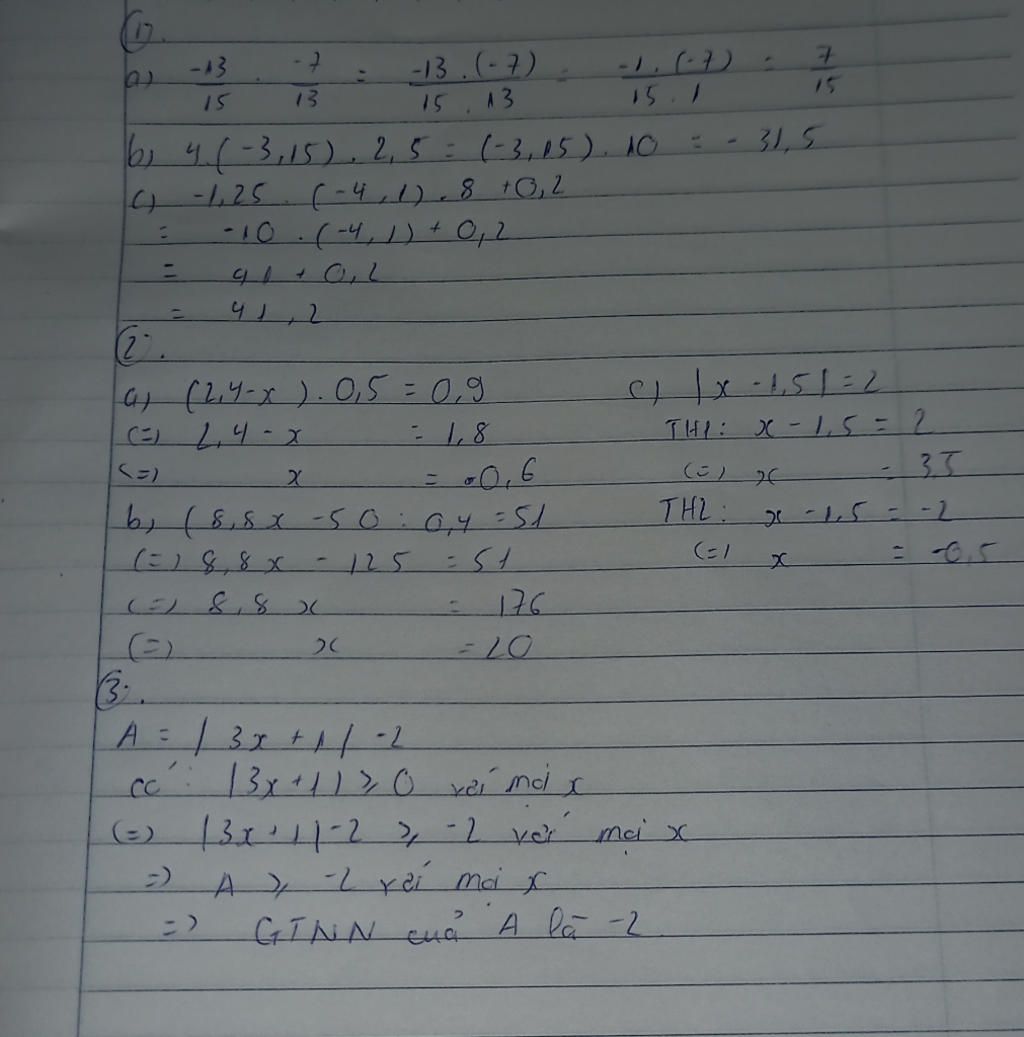 1).
a) -13/15 . -7/13 = -13.(-7)/15.13 = -1.(-7)/15.1 = 7/15
b) 4.(-3,15).2,5 = (-3,15).10 = -31,5
c) -1,25.(-4,1).8+0,2
= -10.(-4,1)+0,2
= 41+0,2
= 41,2
2).
a) (2,4-x).0,5=0,9
(=) 2,4-x = 1,8
(=) x = 0,6
b) (8,8x-50:0,4=51
(=) 8,8x-125=51
(=) 8,8x = 176
(=) x =20
c) |x-1,5|=2
TH1: x-1,5=2
(=) x = 3,5
TH2: x-1,5=-2
(=) x = -0,5
3).
A = |3x+1|-2
có: |3x+1|≥0 với mọi x
(=) |3x+1|-2≥-2 với mọi x
=> A≥-2 với mọi x
=> GTNN của A là -2